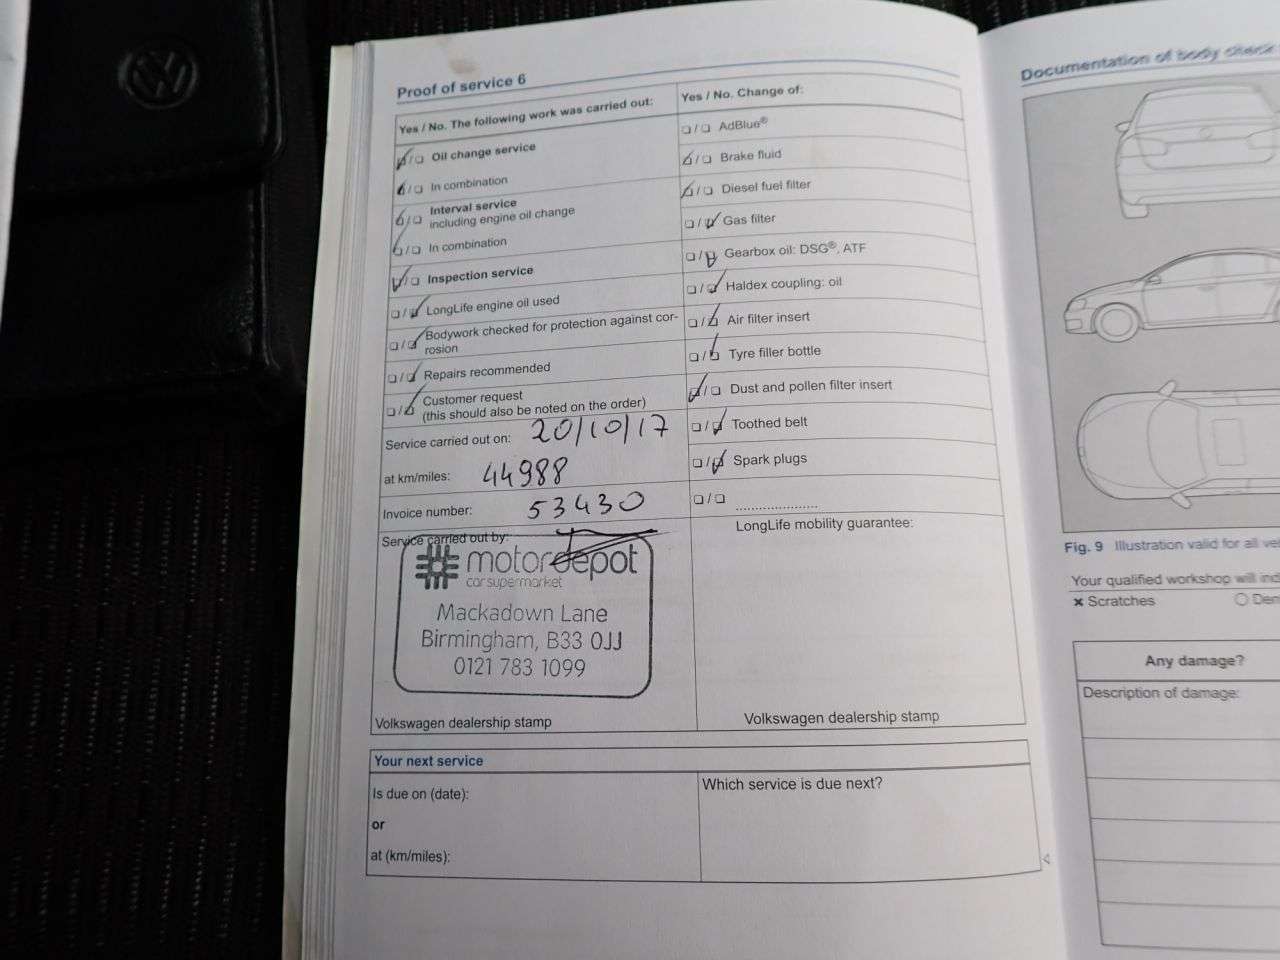 Proof of service 6
Yes / No. The following work was carried out:
☑/☐ Oil change service
☑/☐ In combination
☑/☐ Interval service
including engine oil change
☑/☐ In combination
☑/☐ Inspection service
☐/☑ LongLife engine oil used
☐/☑ Bodywork checked for protection against cor-
rosion
☐/☑ Repairs recommended
☐/☑ Customer request
(this should also be noted on the order)
Service carried out on: 20/10/17
at km/miles: 44988
Invoice number: 53430
Service carried out by:
motordepot
car supermarket
Mackadown Lane
Birmingham, B33 0JJ
0121 783 1099
Volkswagen dealership stamp
Yes / No. Change of:
☐/☐ AdBlue®
☑/☐ Brake fluid
☑/☐ Diesel fuel filter
☐/☑ Gas filter
☐/☑ Gearbox oil: DSG®, ATF
☐/☑ Haldex coupling: oil
☐/☑ Air filter insert
☐/☑ Tyre filler bottle
☑/☐ Dust and pollen filter insert
☐/☑ Toothed belt
☐/☑ Spark plugs
☐/☐ ......................
LongLife mobility guarantee:
Volkswagen dealership stamp
Your next service
Is due on (date):
or
at (km/miles):
Which service is due next?
Documentation of body check
Fig. 9 Illustration valid for all
Your qualified workshop will
✖ Scratches
Any damage?
Description of damage: